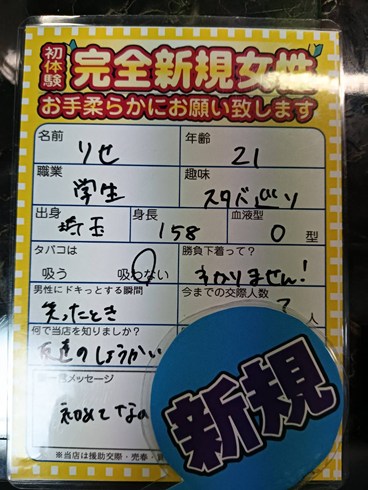 初体験
完全新規女性
お手柔らかにお願い致します
名前
りせ
年齢
21
職業
学生
趣味
スタバ巡り
出身
埼玉
身長
158
血液型
O 型
タバコは
吸う 吸わない
勝負下着って?
わかりません!
男性にドキっとする瞬間
笑ったとき
今までの交際人数
人
何で当店を知りましたか?
友達のしょうかい
メッセージ
初めてなの
新規
※当店は援助交際・売春